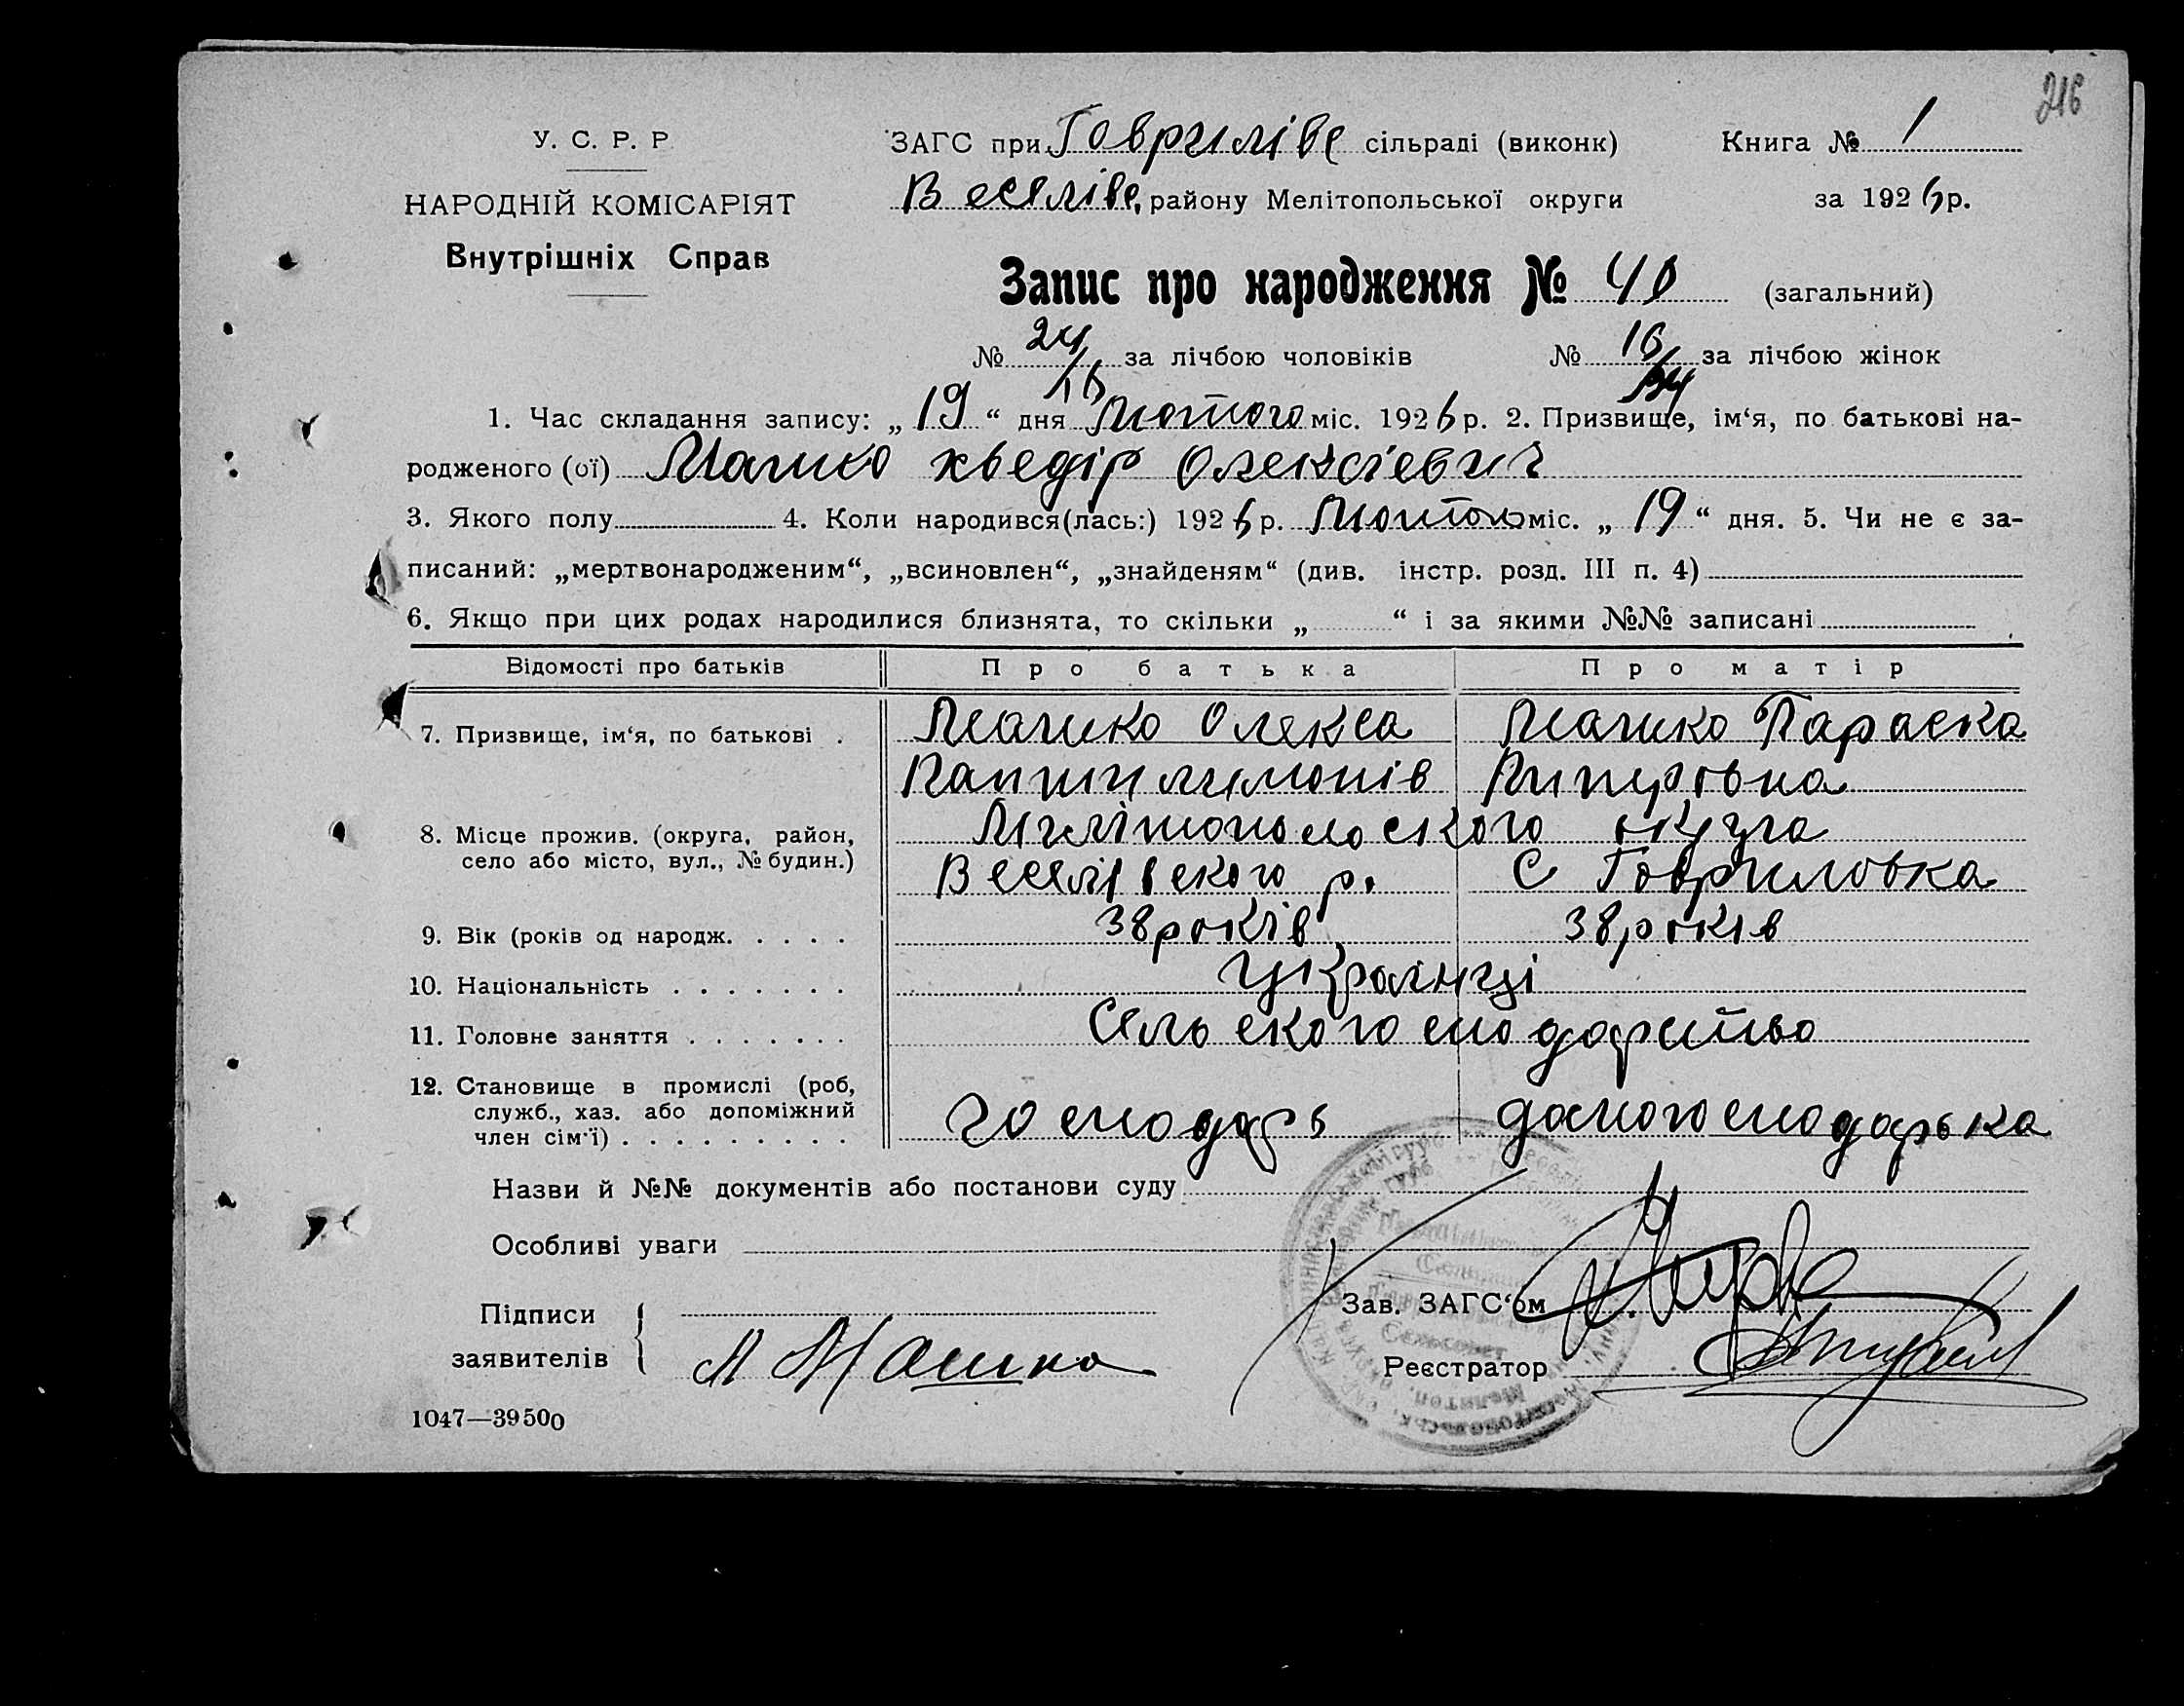 216
У. С. Р. Р
НАРОДНІЙ КОМІСАРІЯТ
Внутрішніх Справ
ЗАГС при Говриліве сільраді (виконк)
Веселіве, району Мелітопольської округи
Книга № 1
за 1926 р.
Запис про народження № 40 (загальний)
№ 24 за лічбою чоловіків № 16 за лічбою жінок
16
1. Час складання запису: „ 19 “ дня Лютого міс. 1926 р. 2. Призвище, ім‘я, по батькові на-
родженого (ої) Машко хведір Олексієвич
3. Якого полу 4. Коли народився(лась:) 1926 р. Лютого міс. „ 19 “ дня. 5. Чи не є за-
писаний: „мертвонародженим“, „всиновлен“, „знайденям“ (див. інстр. розд. III п. 4)
6. Якщо при цих родах народилися близнята, то скільки „ “ і за якими №№ записані
Відомості про батьків Про батька Про матір
7. Призвище, ім‘я, по батькові . Машко Олекса Машко Параска
8. Місце прожив. (округа, район, Мелітопольского округа
село або місто, вул., № будин.) Веселівского р. С Говриловка
9. Вік (років од народж. . . . . 38 років 38 років
10. Національність . . . . . . . Українці
11. Головне заняття . . . . . . . Сельского сподарство
12. Становище в промислі (роб,
служб., хаз. або допоміжний господарь домогосподарька
член сім‘ї) . . . . . . . . .
Назви й №№ документів або постанови суду
Особливі уваги
Підписи
заявителів
Машка
Зав. ЗАГС‘ом
Реєстратор
1047—39500